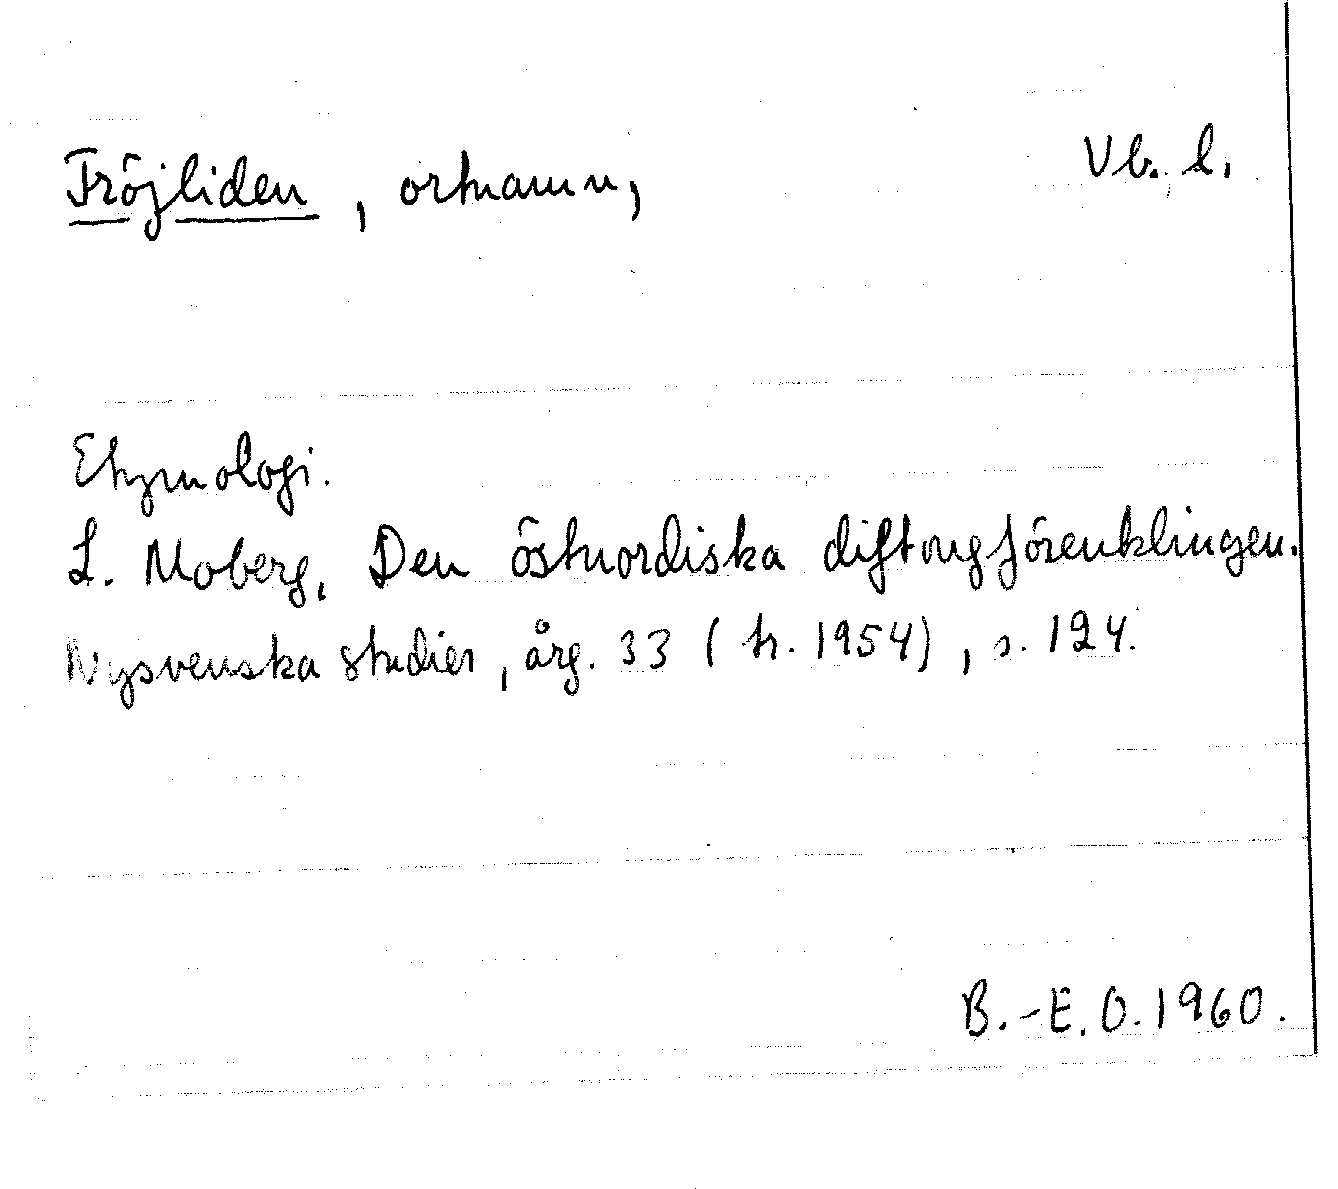 Fröjliden, ortnamn, Vb. l.
Etymologi.
L. Moberg, Den östnordiska diftongförenklingen.
Nysvenska studier, årg. 33 (tr. 1954), s. 124.
B.-E. O. 1960.